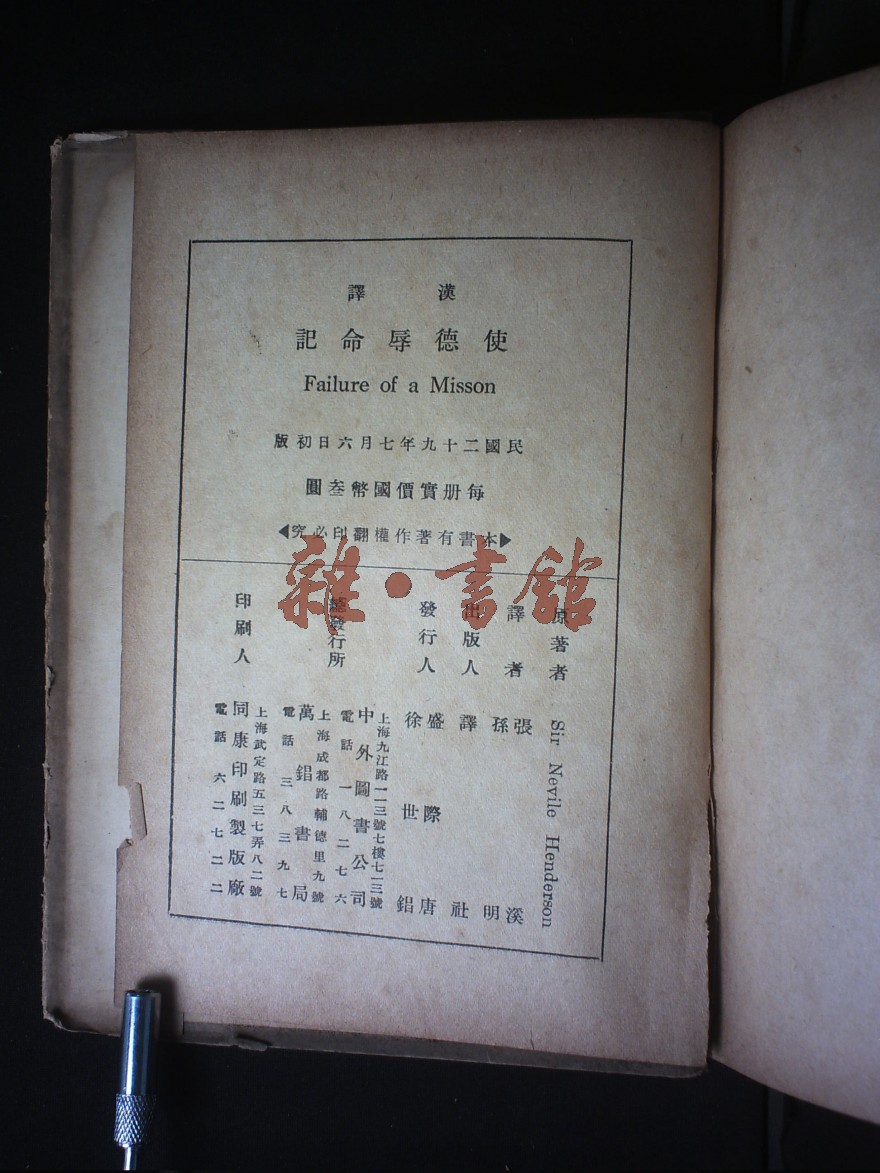 漢譯
使德辱命記
Failure of a Misson
民國二十九年七月六日初版
每册實價國幣叁圓
▶本書有著作權翻印必究◀
雜•書館
原著者 Sir Nevile Henderson
譯者 張溪
孫明
出版人 譯社
發行人 盛際唐
徐世錩
總發行所
上海九江路一一三號七樓七一三號
中外圖書公司
電話一八二七六
上海成都路輔德里九號
萬錩書局
電話三八三九七
印刷人
上海武定路五三七弄八二號
同康印刷製版廠
電話六二七二二